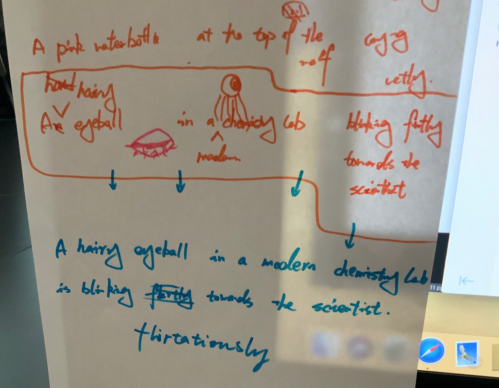 A pink waterbottle at the top of the roof
hairy
An eyeball in a chemistry lab blinking
modern
towards the
scientist
A hairy eyeball in a modern chemistry lab
is blinking towards the scientist.
flirtatiously